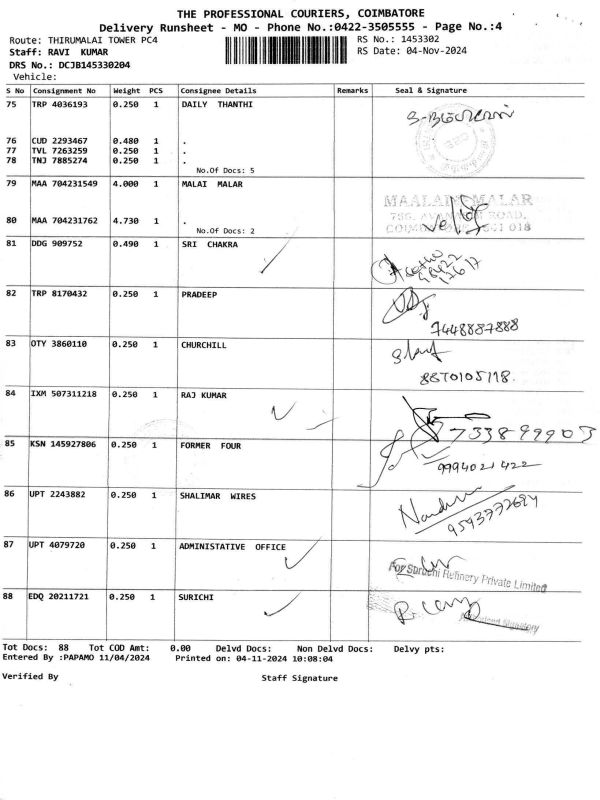 THE PROFESSIONAL COURIERS, COIMBATORE
Delivery Runsheet - MO - Phone No.:0422-3505555 - Page No.:4
Route: THIRUMALAI TOWER PC4 RS No.: 1453302
Staff: RAVI KUMAR RS Date: 04-Nov-2024
DRS No.: DCJB145330204
Vehicle:
S No Consignment No Weight PCS Consignee Details Remarks Seal & Signature
75 TRP 4036193 0.250 1 DAILY THANTHI
76 CUD 2293467 0.480 1 .
77 TVL 7263259 0.250 1 .
78 TNJ 7885274 0.250 1 .
No.Of Docs: 5
79 MAA 704231549 4.000 1 MALAI MALAR
MAALAI MALAR
ROAD,
80 MAA 704231762 4.730 1 . 641 018
No.Of Docs: 2
81 DDG 909752 0.490 1 SRI CHAKRA
82 TRP 8170432 0.250 1 PRADEEP
7448887888
83 OTY 3860110 0.250 1 CHURCHILL
84 IXM 507311218 0.250 1 RAJ KUMAR
733899903
85 KSN 145927806 0.250 1 FORMER FOUR
9994021422
86 UPT 2243882 0.250 1 SHALIMAR WIRES
87 UPT 4079720 0.250 1 ADMINISTATIVE OFFICE
For Suruchi Refinery Private Limited
88 EDQ 20211721 0.250 1 SURICHI
Authorised Signatory
Tot Docs: 88 Tot COD Amt: 0.00 Delvd Docs: Non Delvd Docs: Delvy pts:
Entered By :PAPAMO 11/04/2024 Printed on: 04-11-2024 10:08:04
Verified By Staff Signature